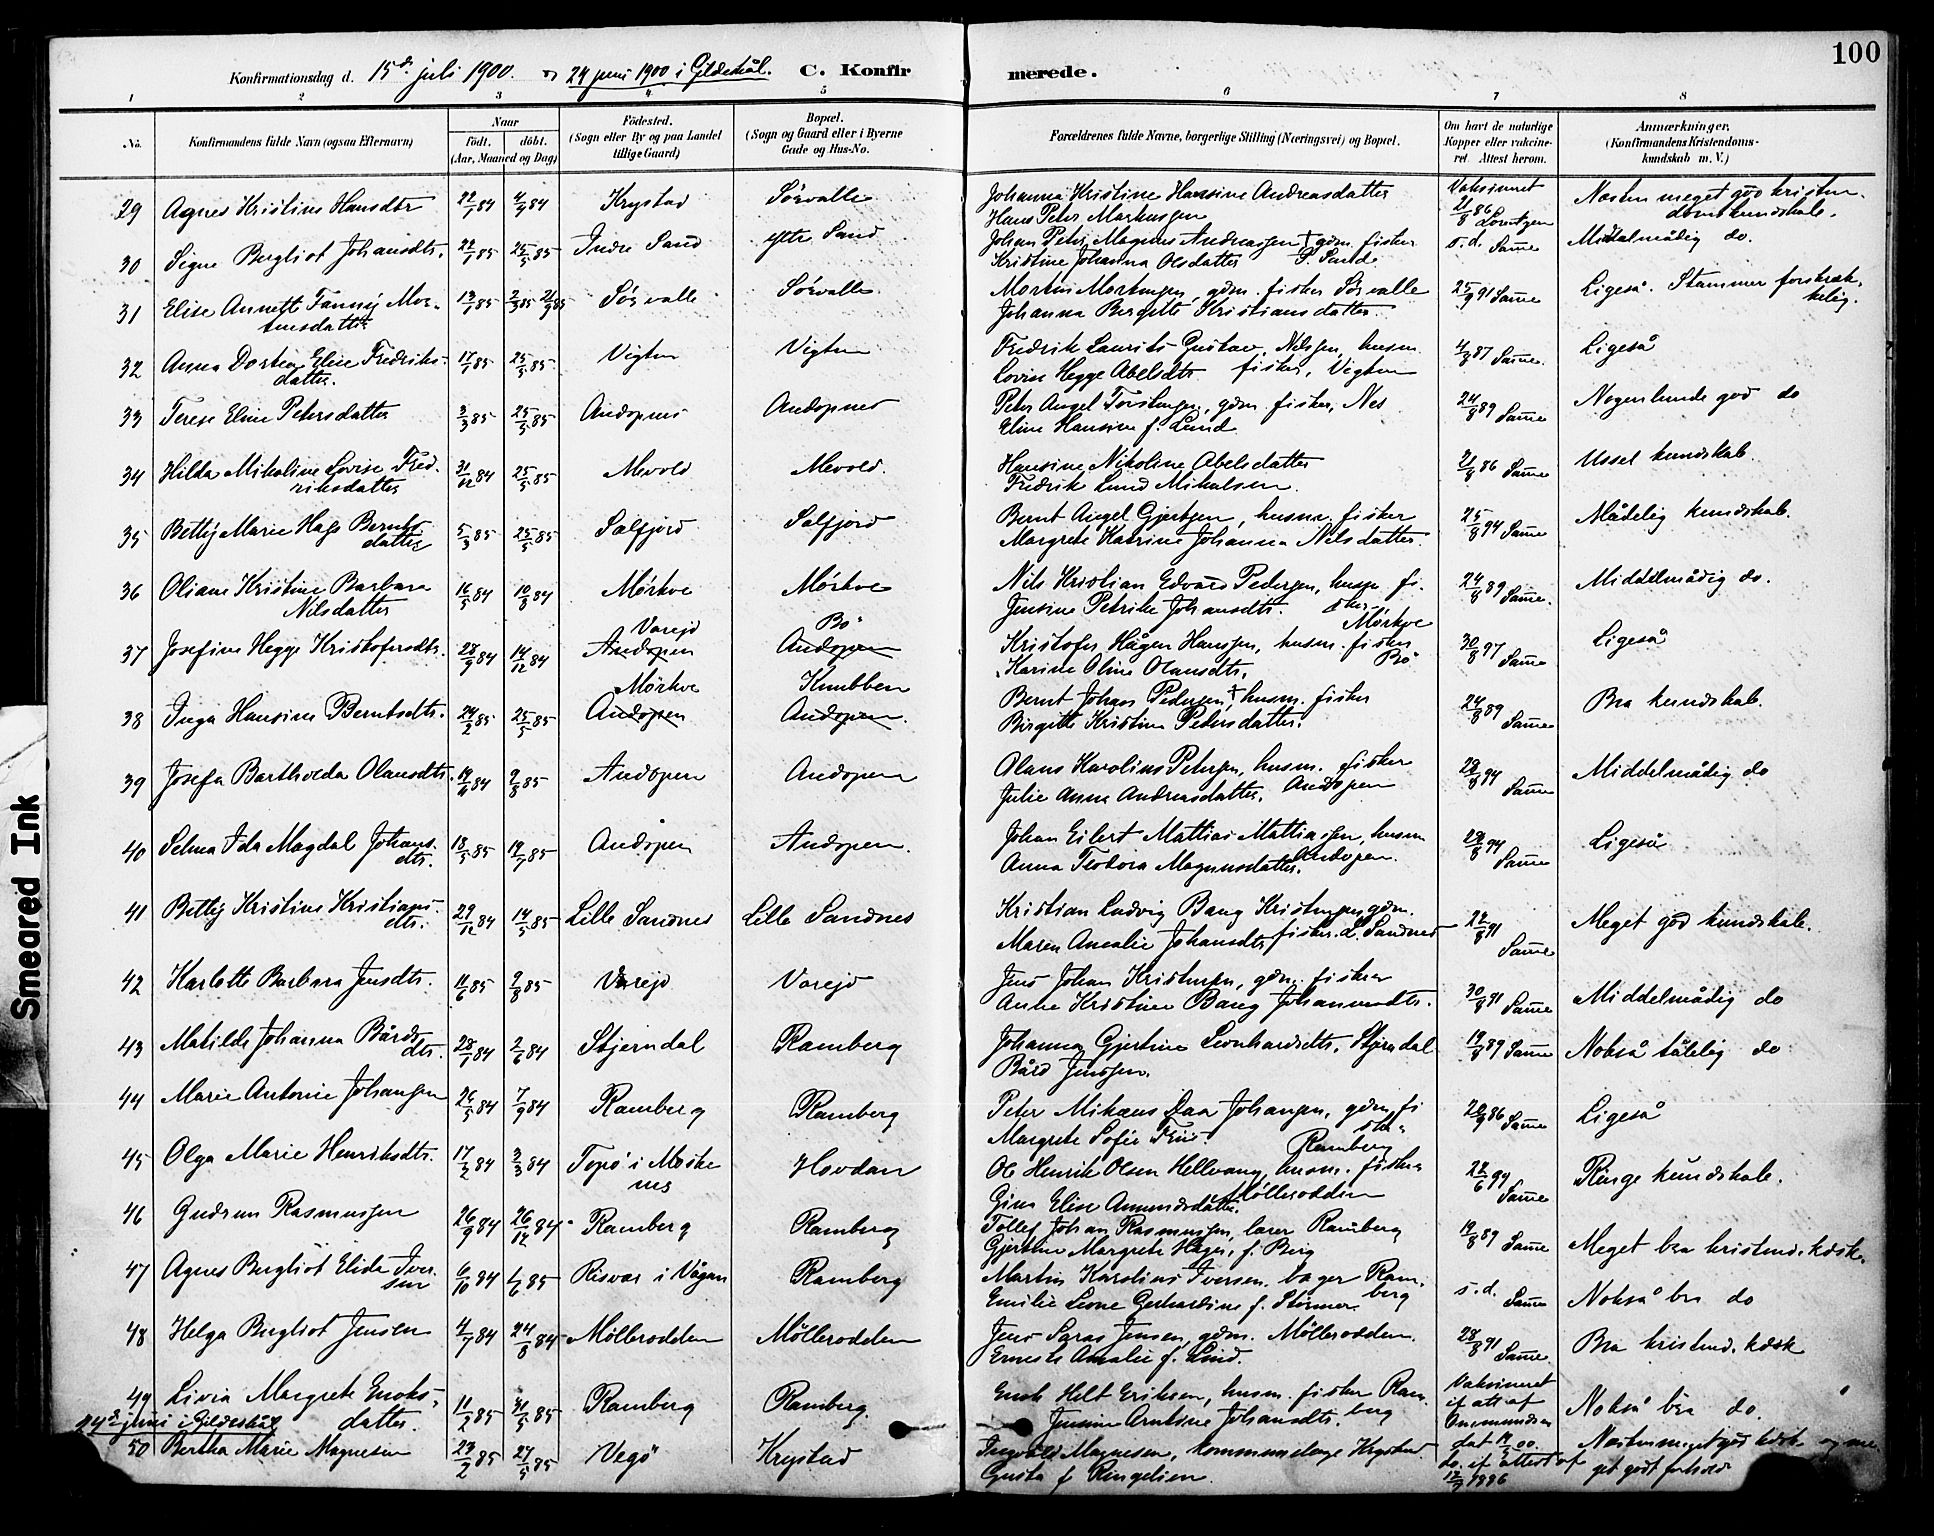 100
Konfirmationsdag d. 15de juli 1900. 24 juni 1900 i Gildeskål. C. Konfirmerede.
1 2 3 4 5 6 7 8
No. Konfirmandens fulde Navn (ogsaa Efternavn) Naar Født. døbt. (Aar, Maaned og Dag) Fødested. (Sogn eller By og paa Landet tillige Gaard) Bopæl. (Sogn og Gaard eller i Byerne Gade og Hus-No. Forældrenes fulde Navne, borgerlige Stilling (Næringsvei) og Bopæl. Om havt de naturlige Kopper eller vaccineret. Attest herom. Anmærkninger. (Konfirmandens Kristendomskundskab m. V.)
29 Agnes Kristine Hansdtr 22/1 84 4/9 84 Krystad Sørvalle Johanna Kristine Hansine Andreasdatter Vaksineret Næsten meget god kristen-
Hans Peter Markussen 21/8 86 domskundskab.
30 Signe Bergliot Johansdtr. 22/1 85 25/5 85 Indre Sand ytre Sand Johan Peter Magnus Andreassen † gdm. fisker s.d. Same Middelmådig do.
Kristine Johanna Olsdatter
31 Elise Annette Fanny Mor- 13/1 85 Sørvalle Sørvalle Martin Mortensen, gdm. fisker Sørvalle 25/9 91 Same Ligeså. Stammer forskræk-
tensdatter Johanna Bergitte Kristiansdatter. kelig.
32 Anna Dortea Elise Fredriks- 17/1 85 25/5 85 Vigten Vigten Fredrik Laurits Gustav Nilssen, husm. 4/8 87 Same Ligeså
datter. Lovise Hegge Abelsdtr. fisker, Vigten
33 Terese Eline Petersdatter 3/3 85 25/5 85 Andopnes Andopnes Peter Angel Torstensen, gdm. fisker, Nes 24/8 89 Same Nogenlunde god do
Eline Hansine f. Lund
34 Hilda Mikaline Lovise Fred- 31/12 84 25/5 85 Mevold Mevold. Hansine Nikoline Abelsdatter 21/8 86 Same Ussel kundskab.
riksdatter Fredrik Lund Mikalsen.
35 Betty Marie Hage Bernts- 5/3 85 25/5 85 Selfjord Selfjord Bernt Angel Gjertsen, husm. fisker 25/8 94 Same Mådelig kundskab.
datter Margrete Katrine Johanna Nilsdatter.
36 Oliane Kristine Barbara 16/5 84 10/8 84 Mørkve Mørkve Nils Kristian Edvard Pedersen, husm. fi- 24/8 89 Same. Middelmådig do.
Nilsdatter Jensine Petrike Johansdtr. sker Mørkve
Varejd Bø
37 Josefine Hegge Kristofersdtr. 28/9 84 14/12 84 Andopen Andopen Kristofer Hågen Hanssen, husm. fisker 30/8 97 Same Ligeså
Karine Oline Olausdtr. Bø
Mørkve Knubben
38 Inga Hansine Berntsdtr. 24/2 85 25/5 85 Andopen Andopen. Bernt Johan Pedersen † husm. fisker 24/8 89 Same Bra kundskab.
Birgitte Kristine Petersdatter.
39 Josefa Barthveda Olausdtr. 19/11 84 2/8 85 Andopen Andopen Olaus Karolius Petersen, husm. fisker 28/8 94 Same Middelmådig do
Julie Anna Andreasdatter. Andopen
40 Selma Ida Magdal Johans- 18/5 85 19/7 85 Andopen Andopen. Johan Eilert Mattias Mattiassen, husm 28/8 94 Same Ligeså
dtr. Anna Teodora Magnusdatter. Andopen.
41 Betty Kristine Kristians- 29/12 84 14/5 85 Lille Sandnes Lille Sandnes Kristian Ludvig Bang Kristensen, gdm. 22/8 91 Same Meget god kundskab.
dtr. Maren Amalie Johansdtr. fisker. L. Sandnes
42 Karlotte Barbara Jensdtr. 11/6 85 2/8 85 Varejd Varejd Jens Johan Kristensen, gdm. fisker 30/9 91 Same Middelmådig do
Anne Kristine Bang Johannesdtr.
43 Matilde Johanna Bårds- 28/1 84 2/6 84 Stjerndal Ramberg Johanna Gjertine Leonhardsdtr. Stjerndal 19/8 89 Same Nokså tålelig do
dtr. Bård Jenssen.
44 Marie Antonie Johansen 26/5 84 7/9 84 Ramberg Ramberg Peter Mikæus Daa Johansen, gdm. fi 20/9 86 Same Ligeså
Margrete Sofie Friis. sker Ramberg
45 Olga Marie Henriksdtr. 17/2 84 3/3 84 Topø i Moske- Hovdan Ol. Henrik Olsen Hellvang, husm. fisker 22/6 99 Same Ringe kundskab.
nes Gina Elise Amundsdatter. Møllerodden
46 Gudrun Rasmussen 26/9 84 26/12 84 Ramberg Ramberg Tollef Johan Rasmussen, lærer Ramberg 19/8 89 Same Meget bra kristend. kdsk.
Gjertine Margrete Hager, f. Berg
47 Agnes Bergliot Elida Iver- 6/10 84 6/6 85 Risvær i Vågan Ramberg Martin Karolius Iversen. bager Ram- s.d. Same Nokså bra do
sen Emilie Leone Gerhardine f. Størmer. berg
48 Helga Bergliot Jensen 4/7 84 24/8 85 Møllerodden Møllerodden Jens Saras Jensen, gdm. Møllerodden. 28/8 91 Same Bra kristend. kdsk
Erneste Amalie f. Lind.
49 Livia Margrete Enoks- 11/2 85 31/5 85 Ramberg Ramberg. Enok Helt Eriksen, husm. fisker Ram- Vaksineret Nokså bra do.
24de juni i Gildeskål datter. Jensine Arntine Johansdtr. berg if. att. af
50 Bertha Marie Magnesen 23/2 85 27/5 85 Vegø Krystad Ingvald Magnesen, kommunelæge Krystad dat 14/5 00. Næsten meget god kdsk. og me-
Gusta f. Ringelien. do. if. attest af get godt forhold
12/9 1886
Smeared Ink